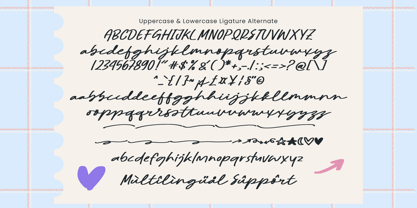 Uppercase & Lowercase Ligature Alternate
ABCDEFGHIJKLMNOPQRSTUVWXYZ
abcdefghijklmnopqrstuvwxyz
1234567890!"#$%&()*+,-./:;<=>?@[\]
aabbccddeeffgghhiijjkkllmmnn
ooppqqrrssttuuvvwwxxyyzz
abcdefghijklmnopqrstuvwxyz
Multilingual Support